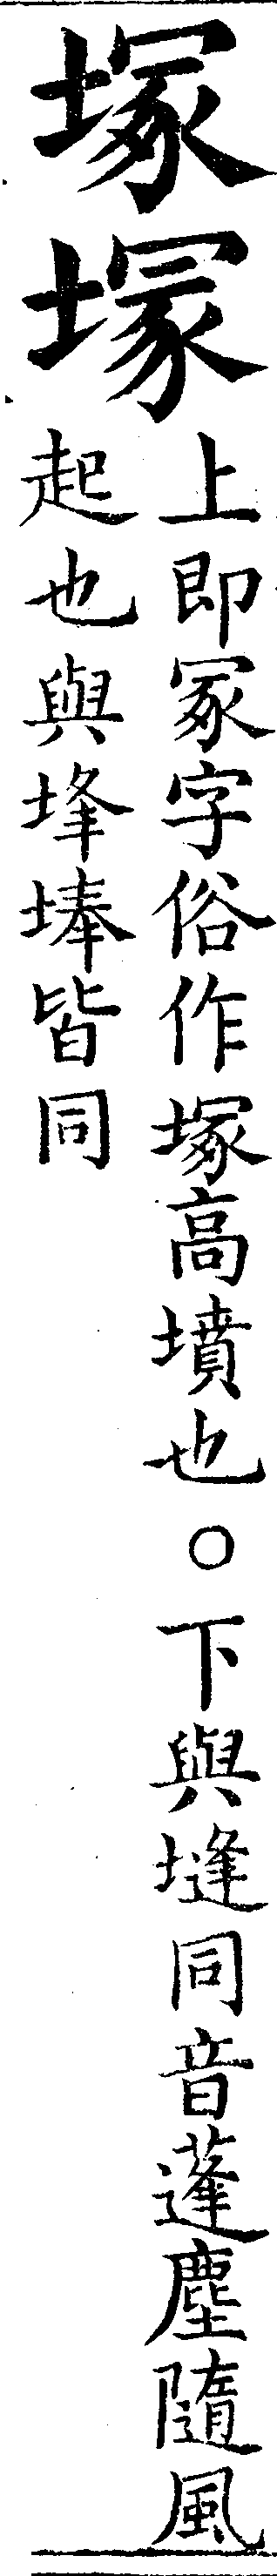 塚塚
上即冢字俗作塚高墳也○下與塳同音蓬塵隨風
起也與埄埲皆同